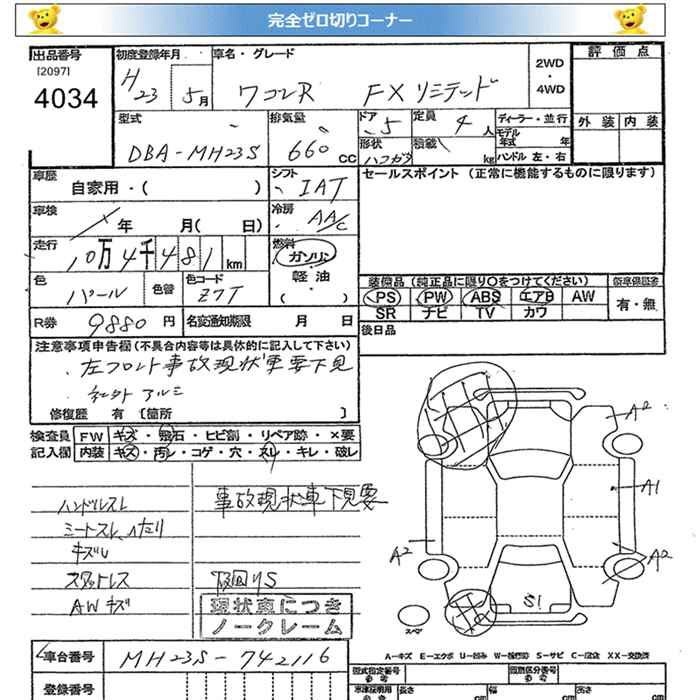 完全ゼロ切りコーナー
出品番号
[2097]
4034
初度登録年月
H 23 5月
車名・グレード
ワゴンR FXリミテッド
2WD
・
4WD
評価点
外装 内装
型式
DBA-MH23S
排気量
660 cc
ドア 5
形状
ハコガタ
定員 4 人
積載 kg
ディーラー・並行
モデル年式 年
ハンドル 左・右
車歴
自家用・( )
シフト
IAT
セールスポイント (正常に機能するものに限ります)
車検
年 月( 日)
冷房
AAC
走行
10万4千481km
燃料
ガソリン
軽油
( )
色
パール
色替
色コード
Z7T
装備品(純正品に限り○をつけてください)
PS PW ABS エアB AW
SR ナビ TV カワ
新車保証書
有・無
R券
9880円
名変通知期限 月 日
後日品
注意事項申告欄(不具合内容等は具体的に記入して下さい)
左フロント事故現状車要下見
社外アルミ
修復歴 有 [箇所 ]
検査員記入欄
FW キズ・飛石・ヒビ割・リペア跡・×要
内装 キズ・汚レ・コゲ・穴・スレ・キレ・破レ
ハンドルスレ
事故現状車下見要
シートスレ、ヘたり
キズU
スペアタイヤレス
AWキズ
現状車につき
ノークレーム
A2
A1
A2
A2
S1
スペア
A-キズ E-エクボ U-凹み W-補修跡 S-サビ C-腐食 XX-交換済
車台番号
MH23S-742116
登録番号
型式指定番号
参考
類別区分番号
参考
車検証明用
参考
長さ cm
幅 cm
高さ cm